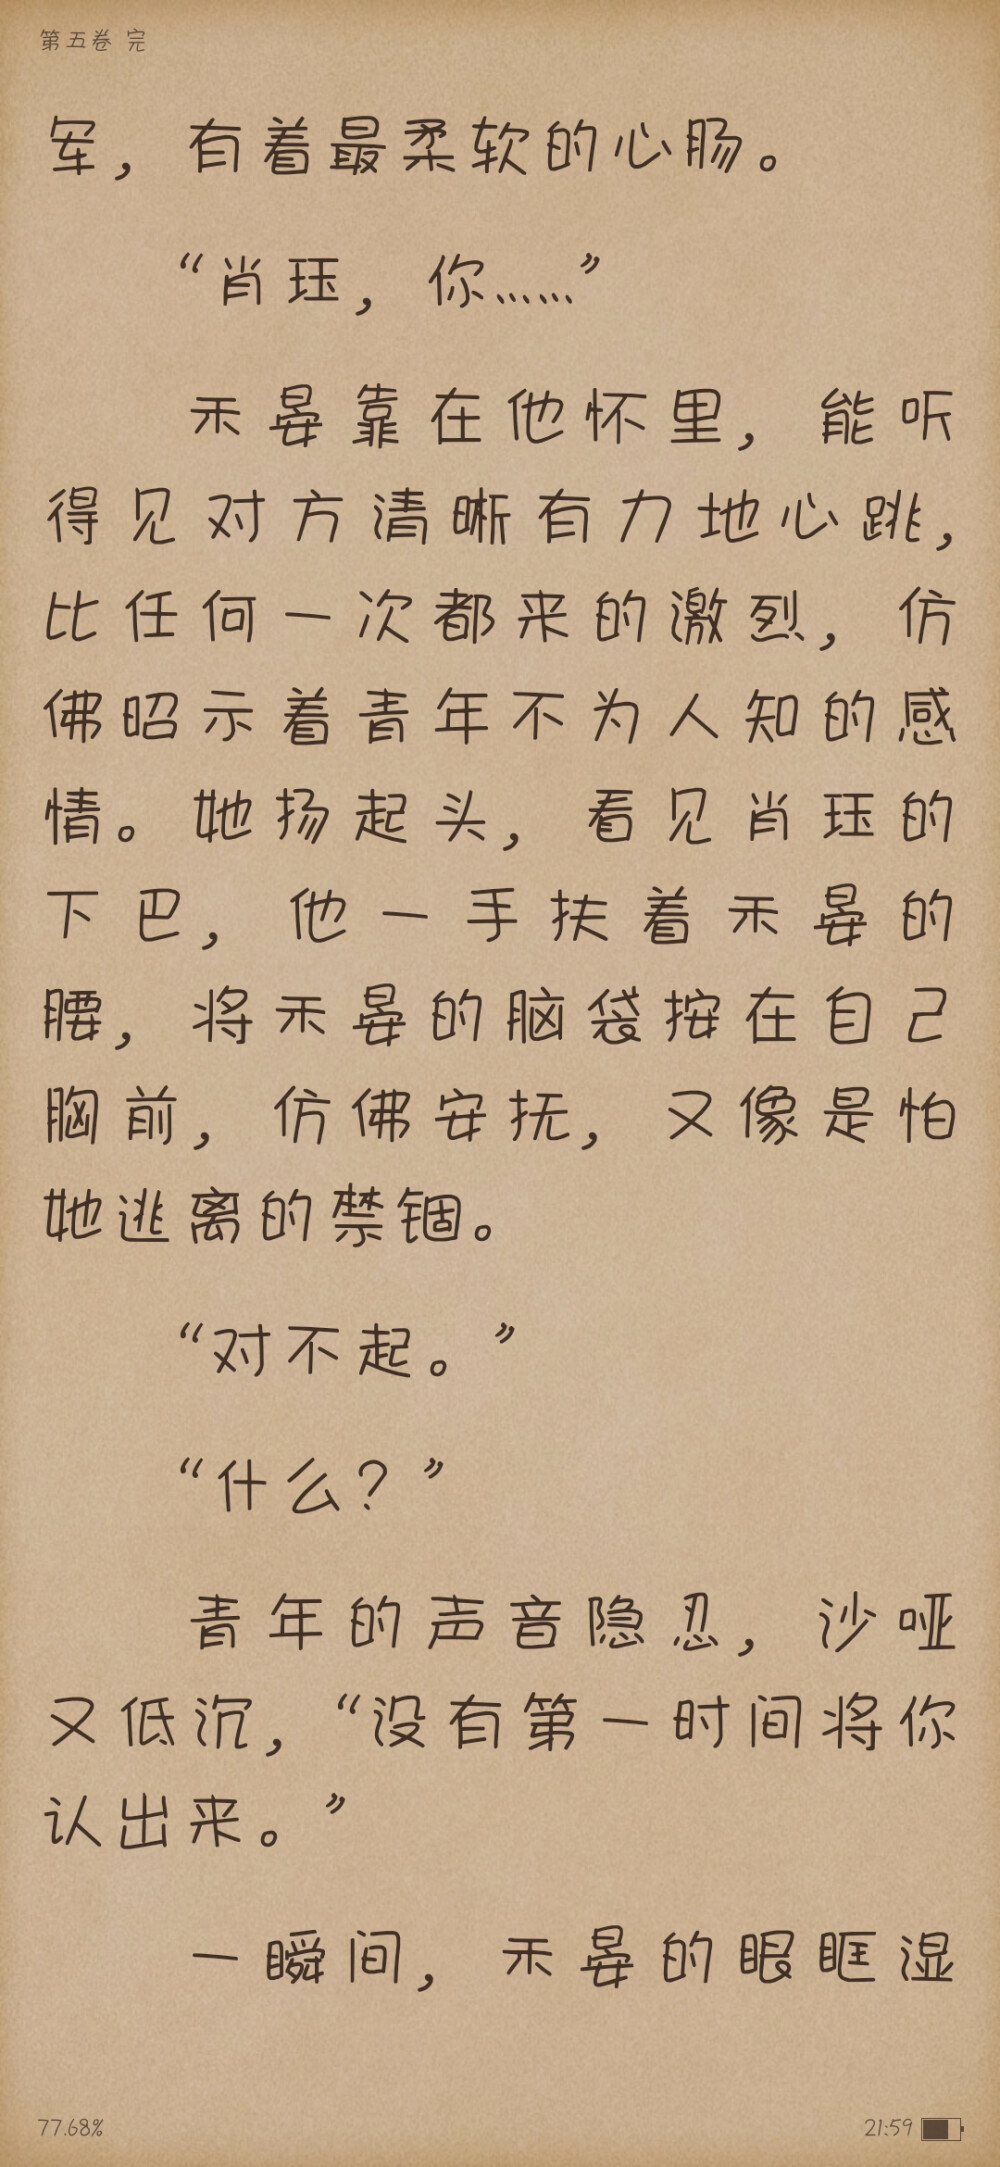 第五卷 完
军，有着最柔软的心肠。
“肖珏，你……”
禾晏靠在他怀里，能听
得见对方清晰有力地心跳，
比任何一次都来的激烈，仿
佛昭示着青年不为人知的感
情。她扬起头，看见肖珏的
下巴，他一手扶着禾晏的
腰，将禾晏的脑袋按在自己
胸前，仿佛安抚，又像是怕
她逃离的禁锢。
“对不起。”
“什么？”
青年的声音隐忍，沙哑
又低沉，“没有第一时间将你
认出来。”
一瞬间，禾晏的眼眶湿
77.68%
21:59